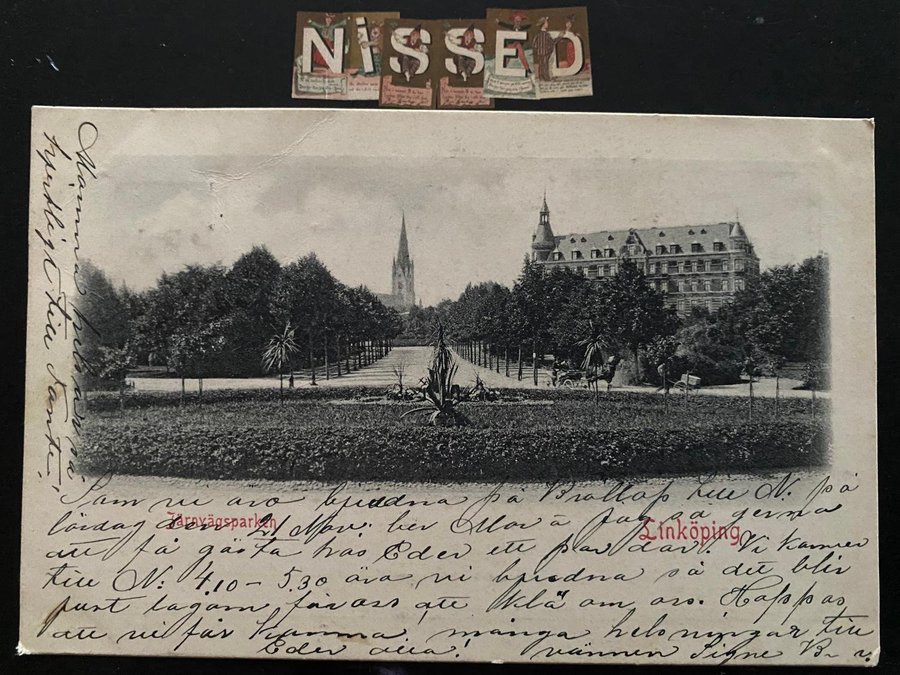 NiSSED
Mamma hälsar så
hjertligt till Tante!
Som vi äro bjudna på Bröllop till N. på
lördag den 21 Nov: ber Mor å jag så gerna
Järnvägsparken
Linköping
att få gästa hos Eder ett par dar. Vi kommer
till N: 4.10 - 5.30 äro vi bjudna så det blir
just lagom för oss att klä om oss. Hoppas
att vi får komma, många helsningar till
Eder alla! vännen Signe B